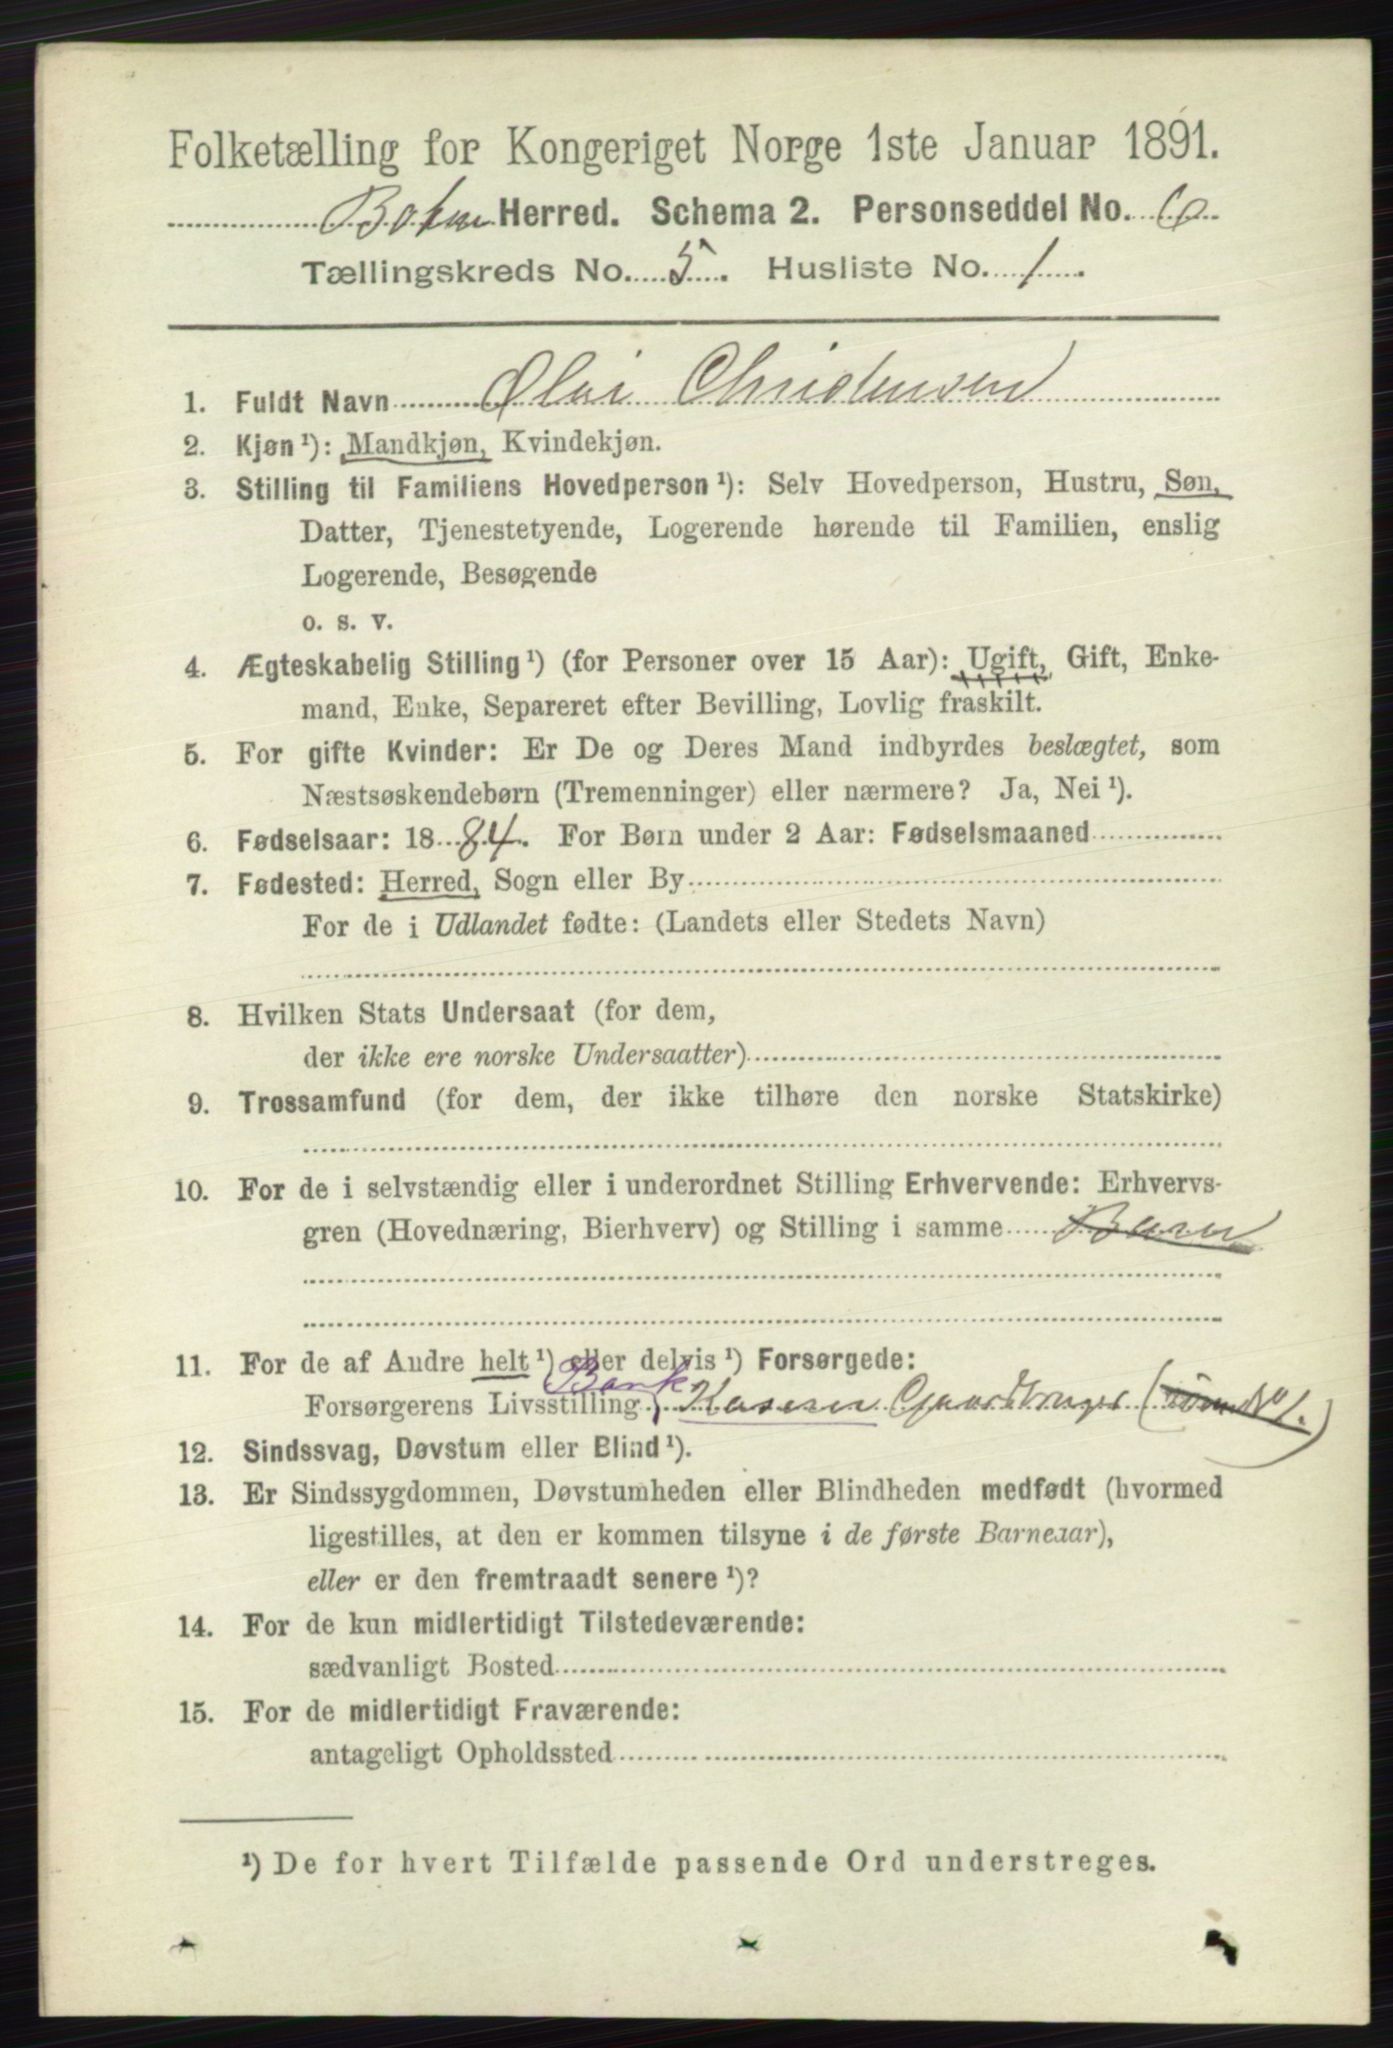 Folketælling for Kongeriget Norge 1ste Januar 1891.
Bokn Herred. Schema 2. Personseddel No. 6.
Tællingskreds No. 5. Husliste No. 1.
1. Fuldt Navn Olai Christensen
2. Kjøn ¹): Mandkjøn, Kvindekjøn.
3. Stilling til Familiens Hovedperson ¹): Selv Hovedperson, Hustru, Søn,
Datter, Tjenestetyende, Logerende hørende til Familien, enslig
Logerende, Besøgende
o. s. v.
4. Ægteskabelig Stilling ¹) (for Personer over 15 Aar): Ugift, Gift, Enke-
mand, Enke, Separeret efter Bevilling, Lovlig fraskilt.
5. For gifte Kvinder: Er De og Deres Mand indbyrdes beslægtet, som
Næstsøskendebørn (Tremenninger) eller nærmere? Ja, Nei ¹).
6. Fødselsaar: 1884. For Børn under 2 Aar: Fødselsmaaned
7. Fødested: Herred, Sogn eller By
For de i Udlandet fødte: (Landets eller Stedets Navn)
8. Hvilken Stats Undersaat (for dem,
der ikke ere norske Undersaatter)
9. Trossamfund (for dem, der ikke tilhøre den norske Statskirke)
10. For de i selvstændig eller i underordnet Stilling Erhvervende: Erhvervs-
gren (Hovednæring, Bierhverv) og Stilling i samme Barn
11. For de af Andre helt ¹) eller delvis ¹) Forsørgede:
Bank
Forsørgerens Livsstilling, Kaserer Gaardbruger ( No 1.)
12. Sindssvag, Døvstum eller Blind ¹).
13. Er Sindssygdommen, Døvstumheden eller Blindheden medfødt (hvormed
ligestilles, at den er kommen tilsyne i de første Barneaar),
eller er den fremtraadt senere ¹)?
14. For de kun midlertidigt Tilstedeværende:
sædvanligt Bosted
15. For de midlertidigt Fraværende:
antageligt Opholdssted
¹) De for hvert Tilfælde passende Ord understreges.